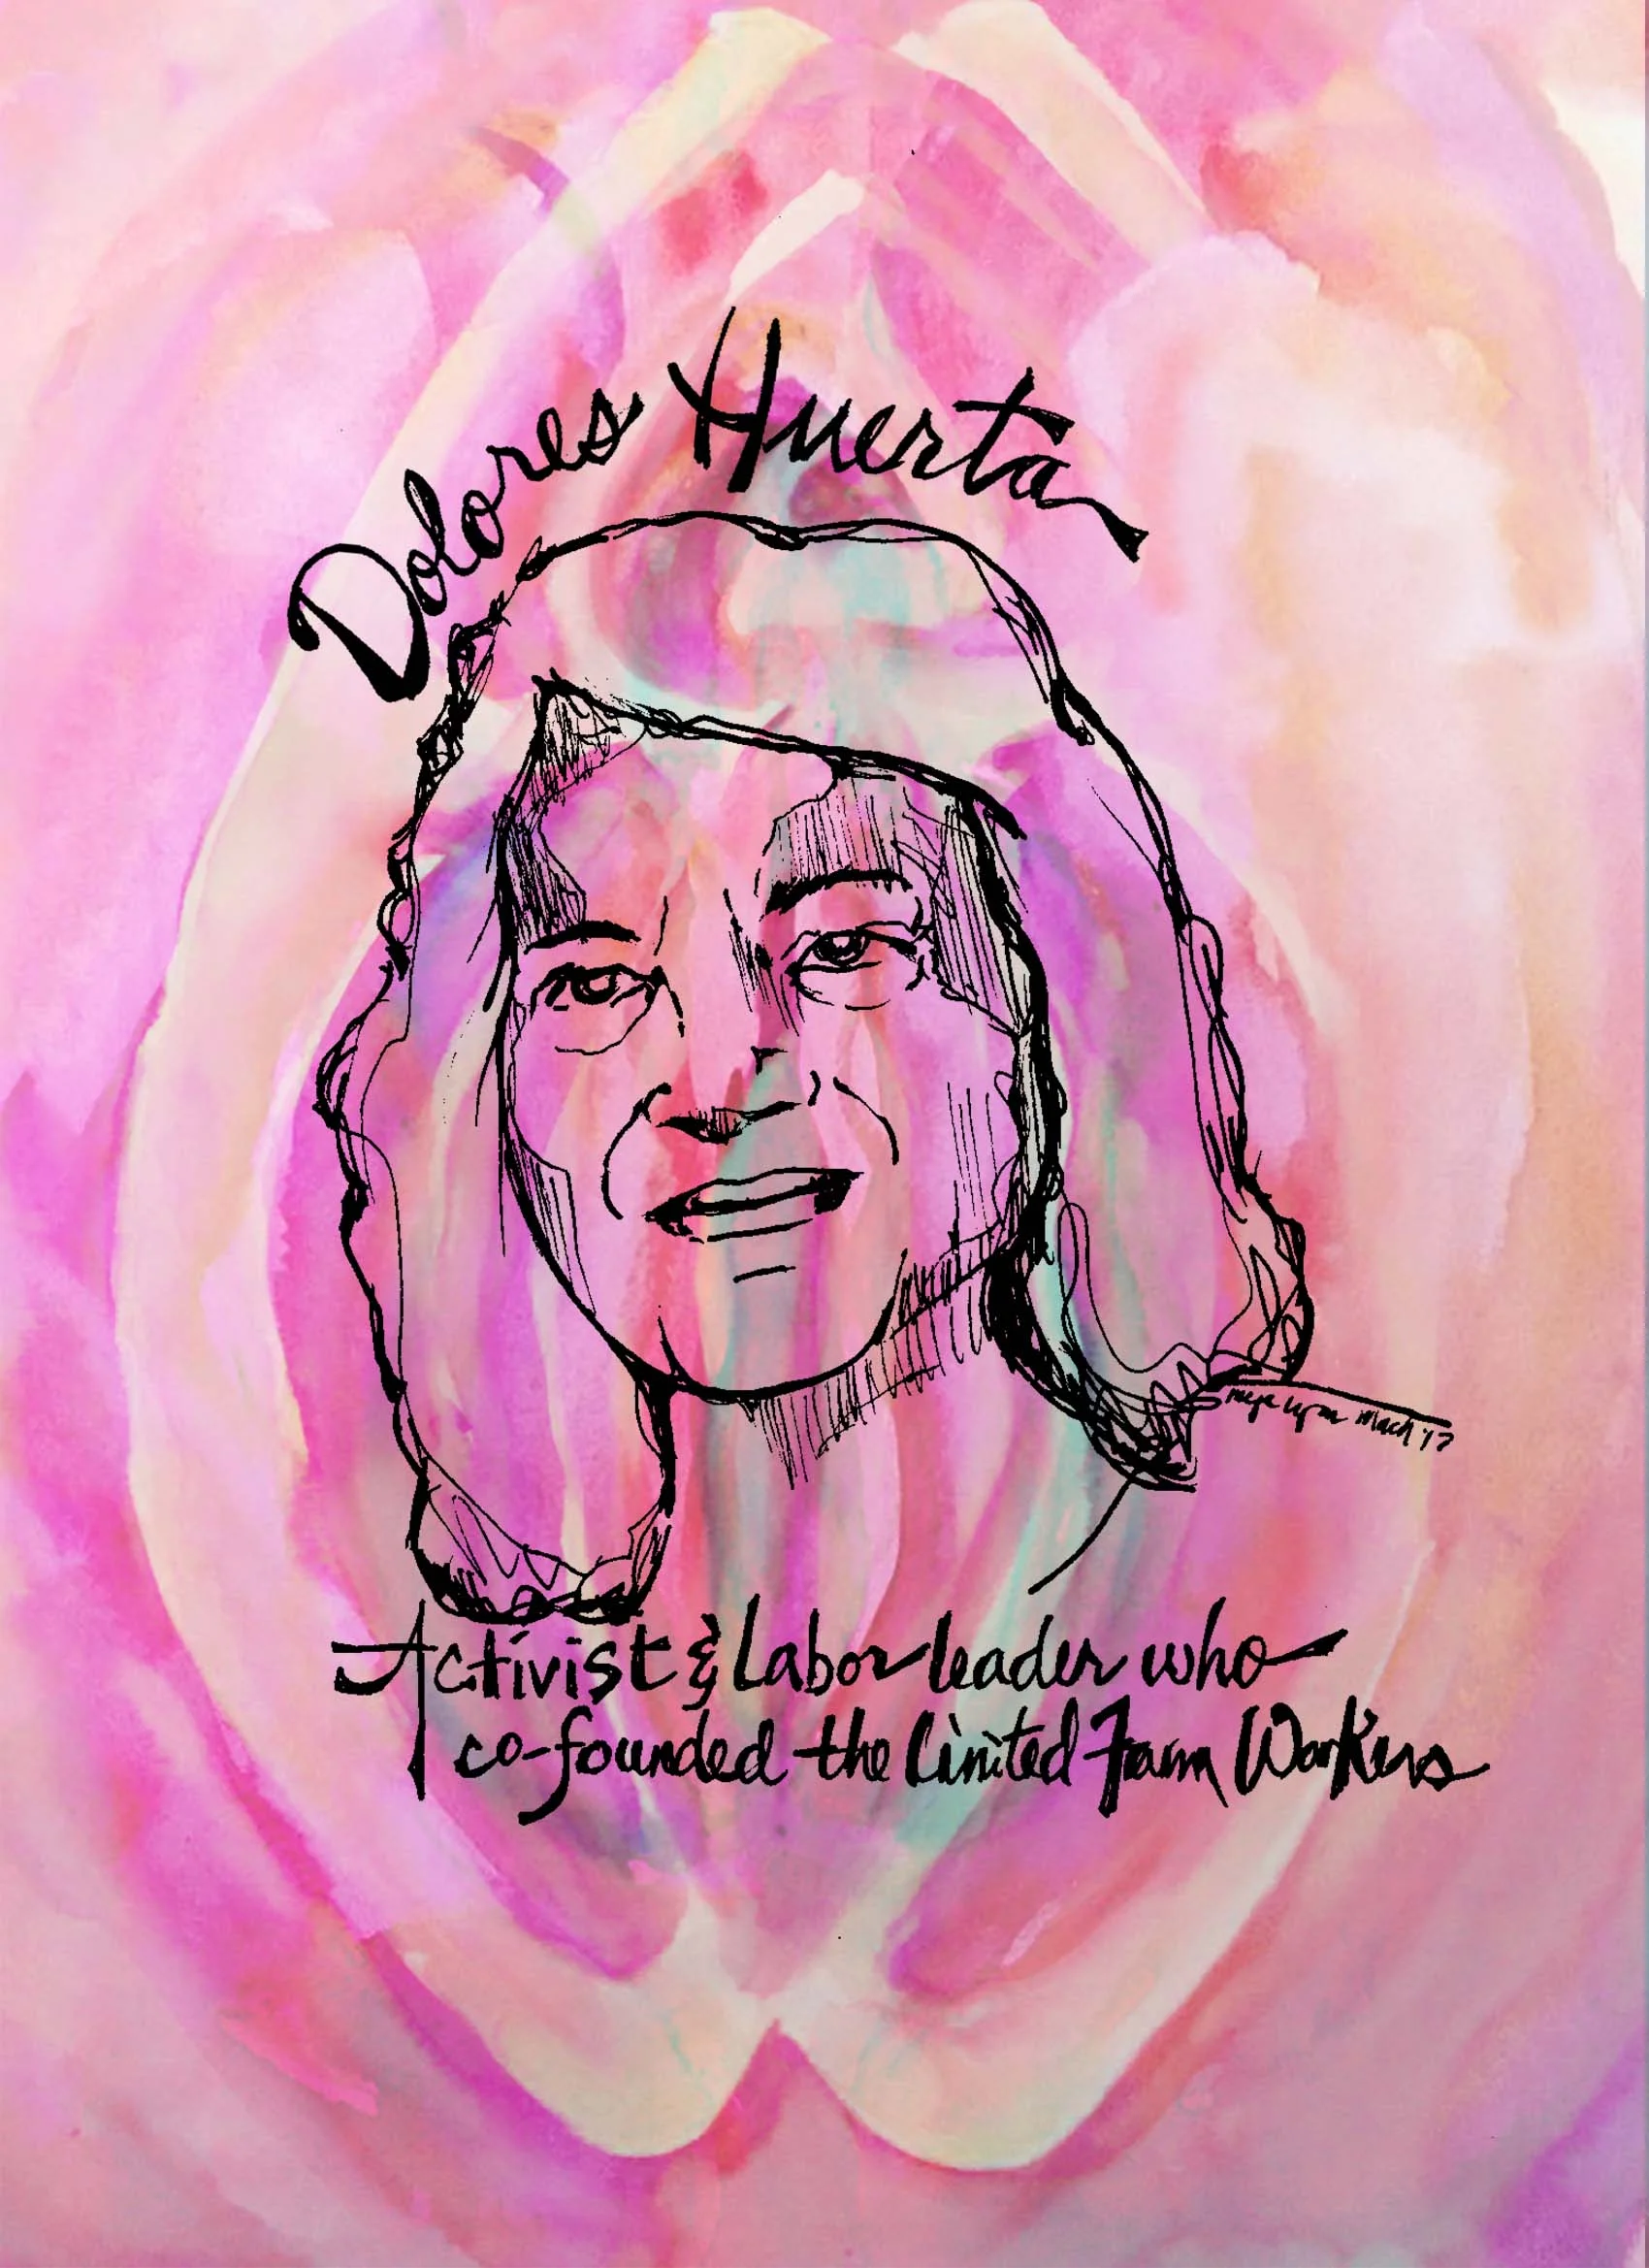 Dolores Huerta
Mach '17
Activist & Labor leader who
co-founded the United Farm Workers